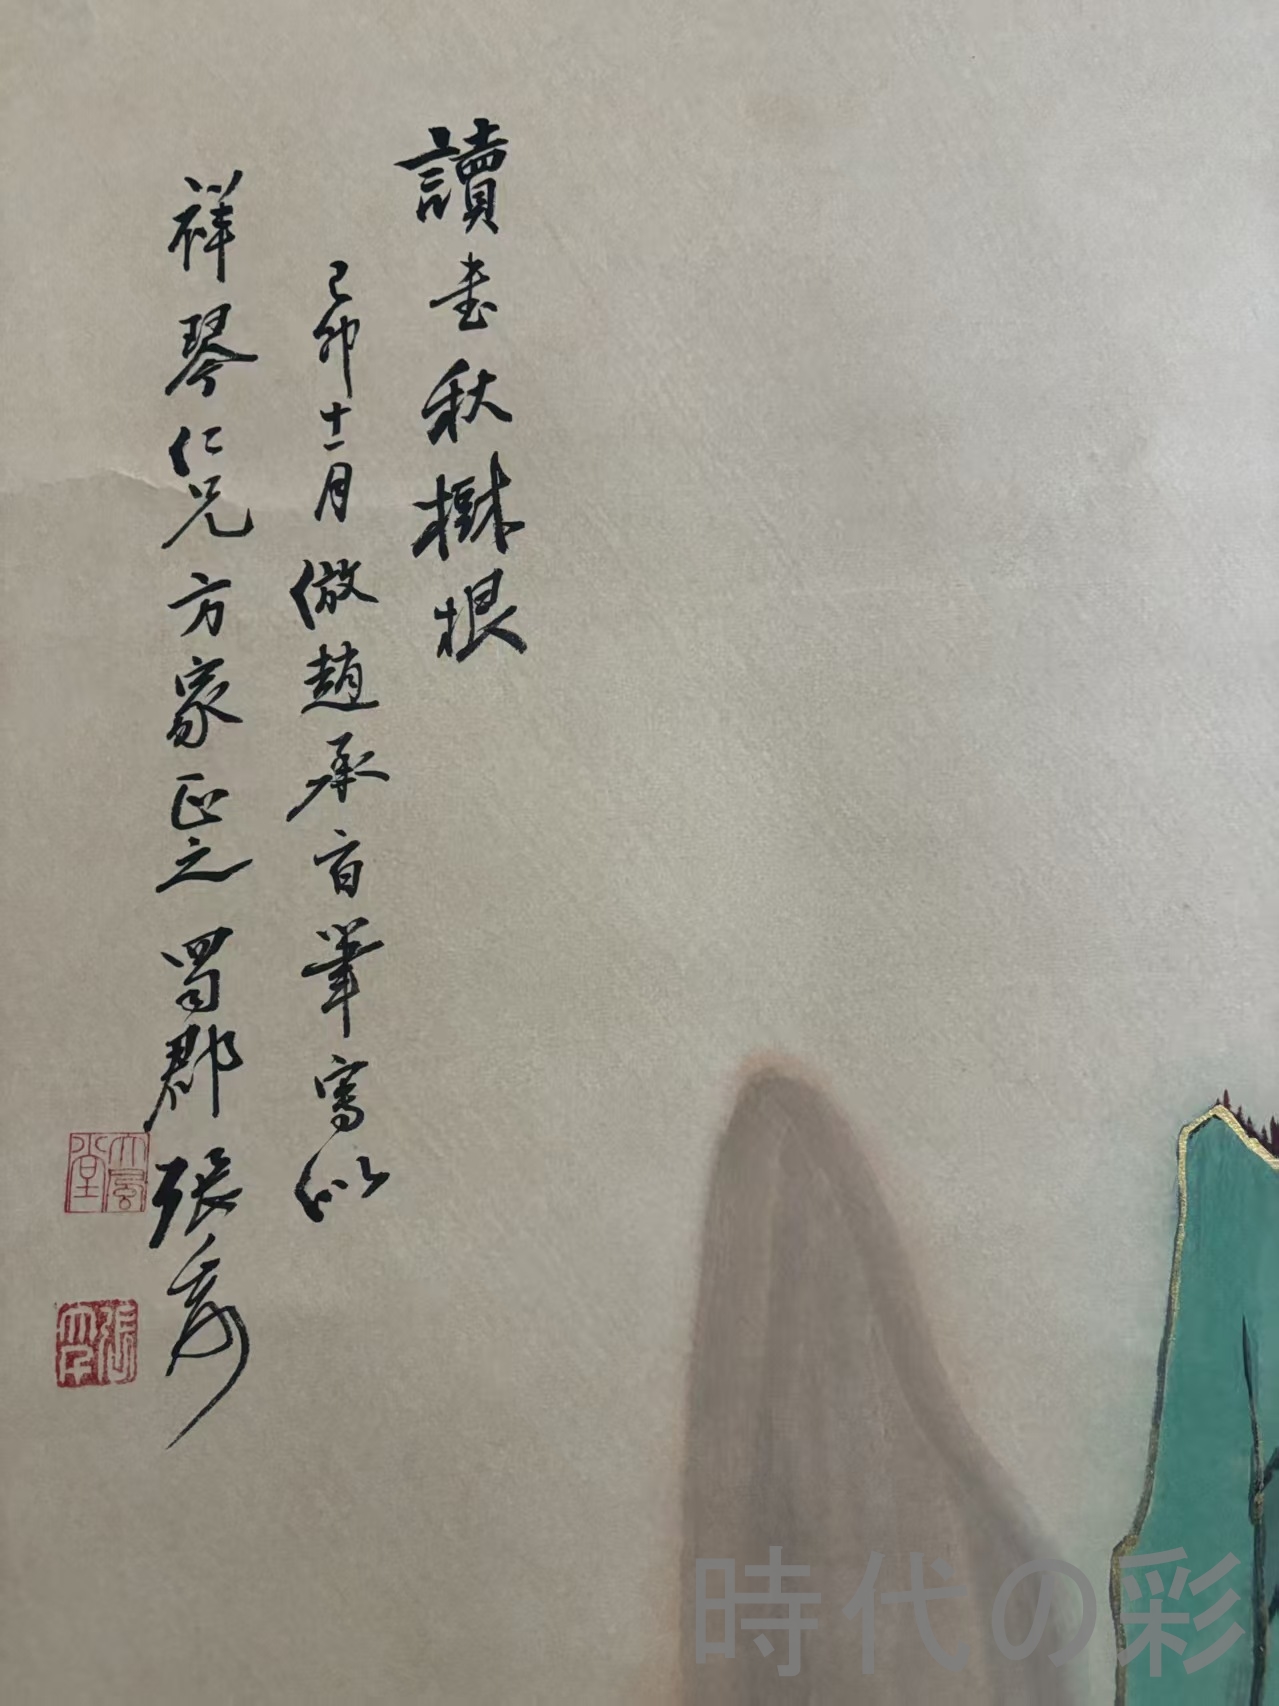 讀書秋樹根
己卯十一月倣趙承旨筆寫似
祥琴仁兄方家正之蜀郡張爰
大風堂
張大千
時代の彩